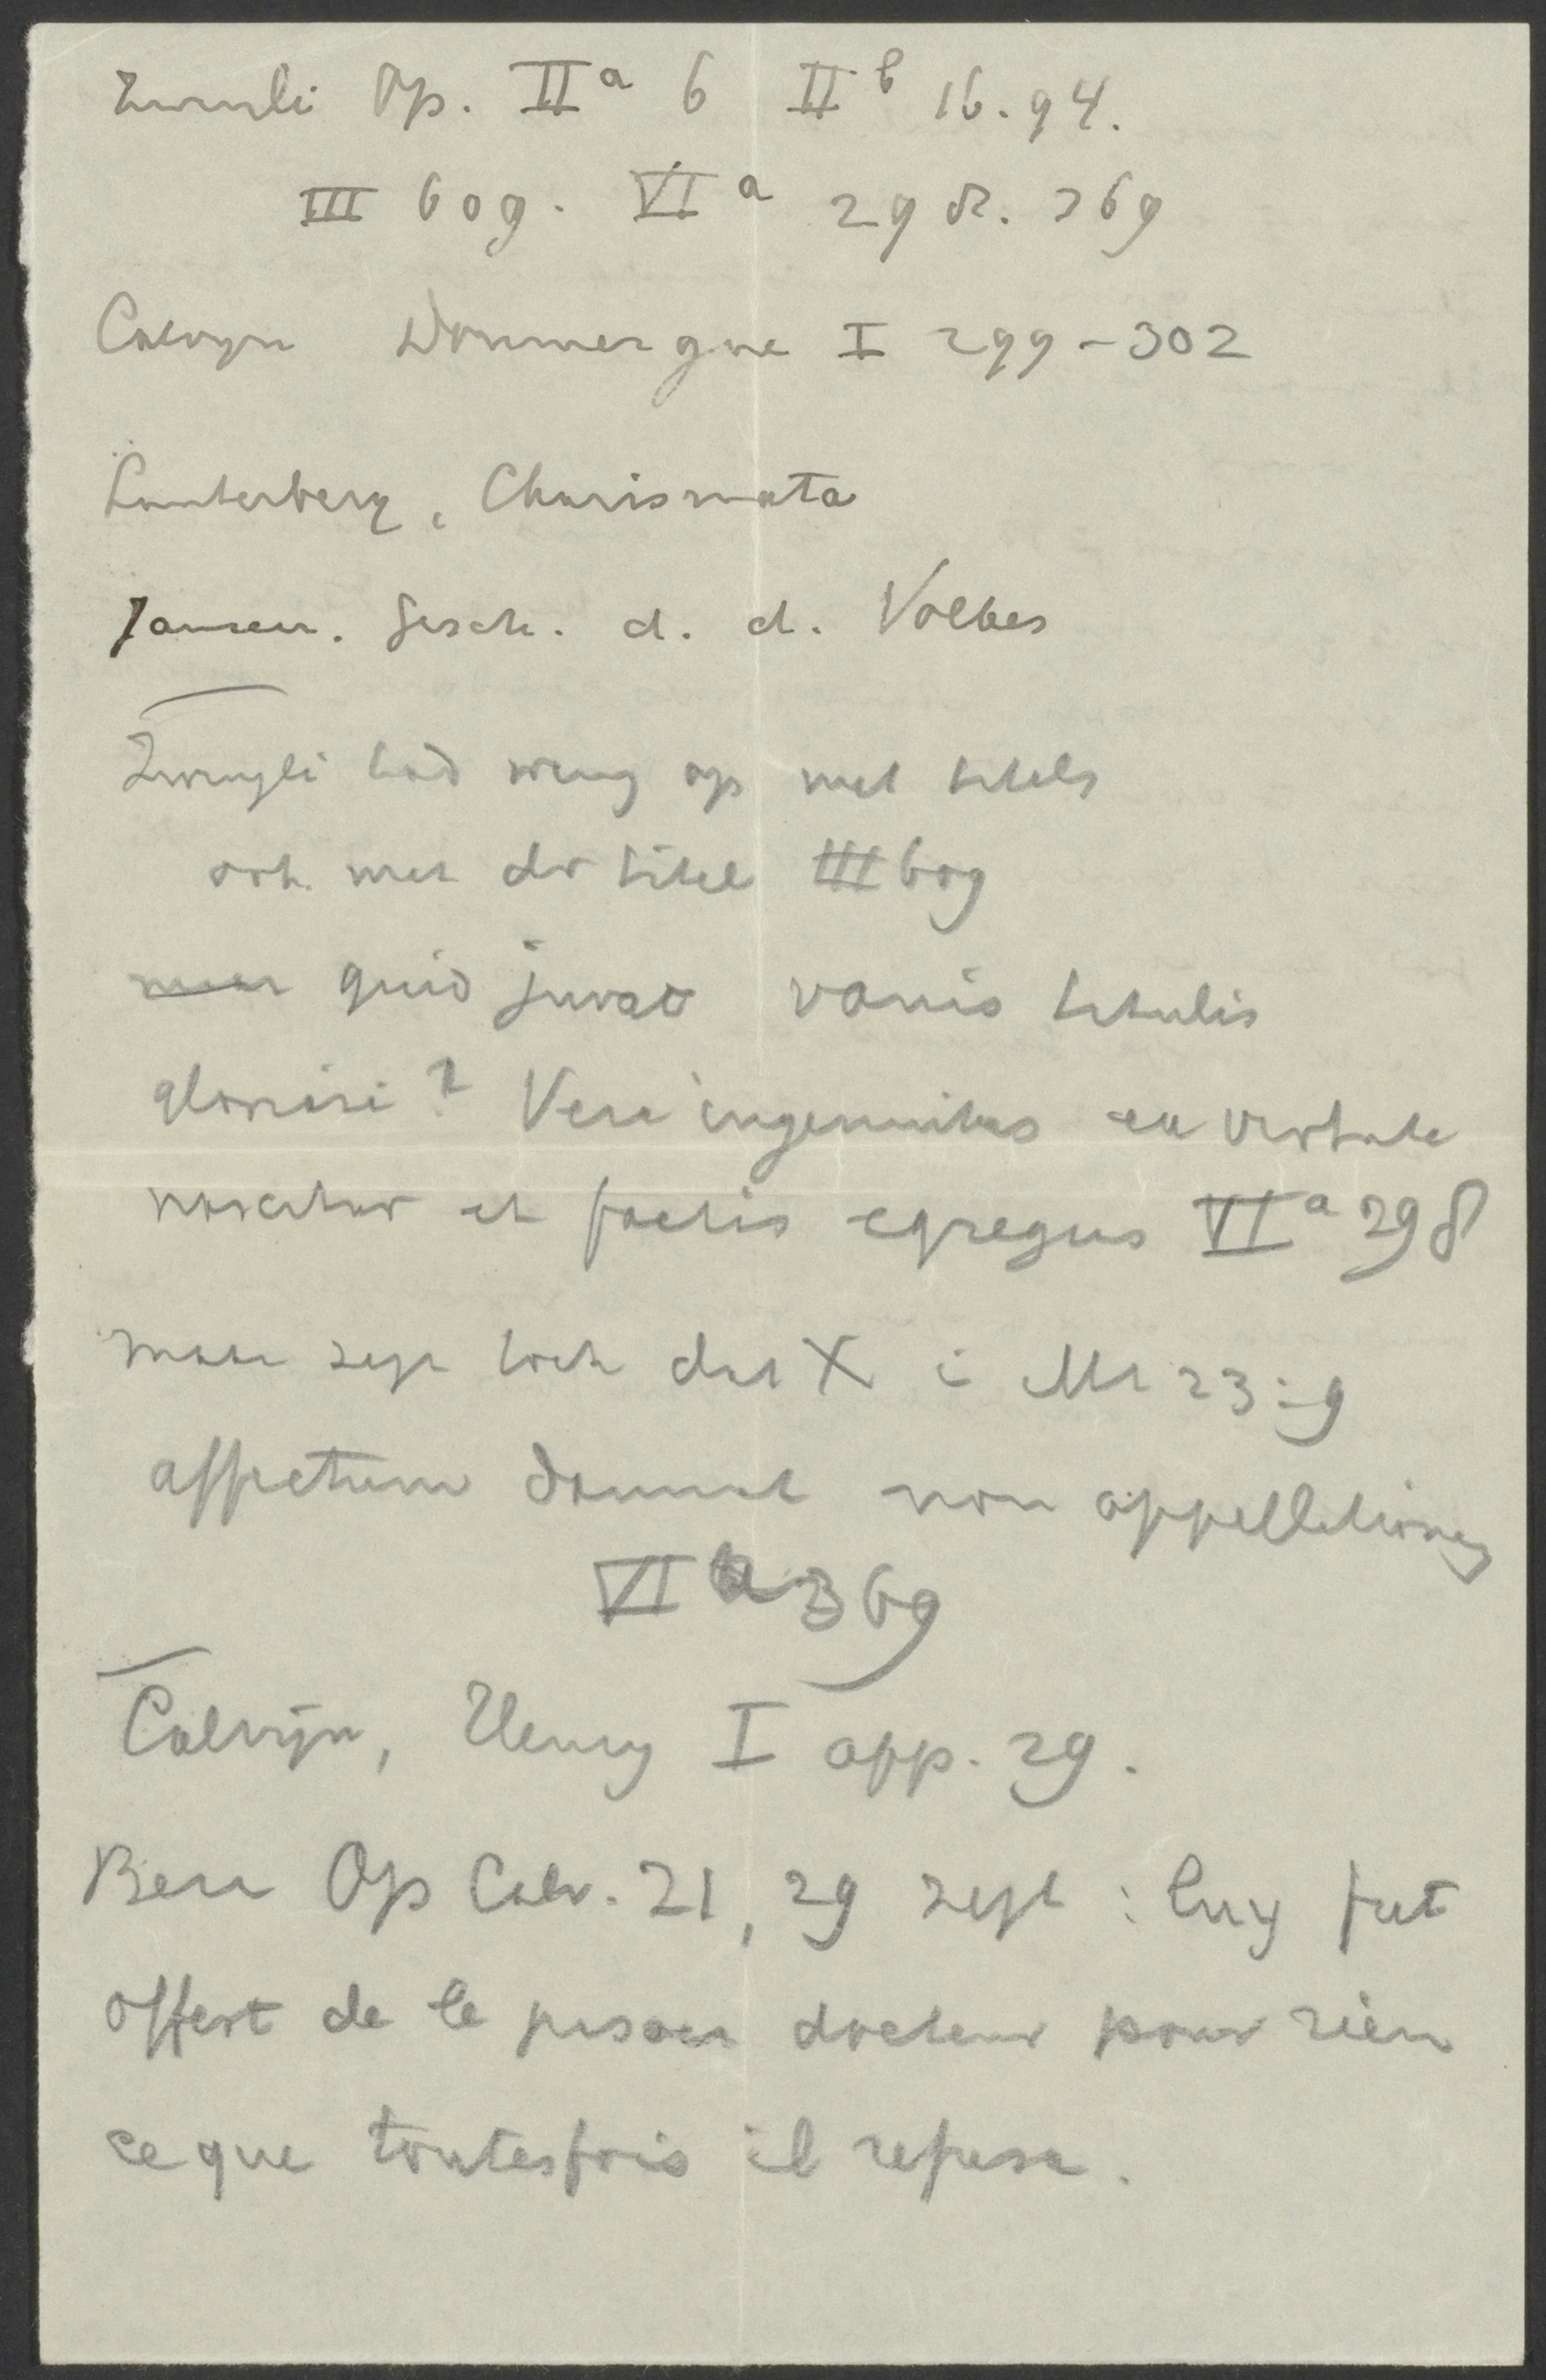 Zwingli Op. II a 6 II b 16. 94.
III 609. VI a 298. 369
Calvyn Doumergue I 299-302
Lauterberg, Charismata
Janssen. Gesch. d. d. Volkes
Zwingli had weing op met titels
ook met dr titel III 609
maar quid juvat vanis titulis
gloriari? Vera ingenuitas ex virtute
nascitur et factis egregiis VI a 298
maar zegt toch dat X i Mt 23:9
affectum damnat non appellationes
VI a 369
Calvijn, Henry I app. 29.
Beza Op Calv. 21, 29 zegt: luy fut
offert de le passer docteur pour rien
ce que toutesfois il refusa.